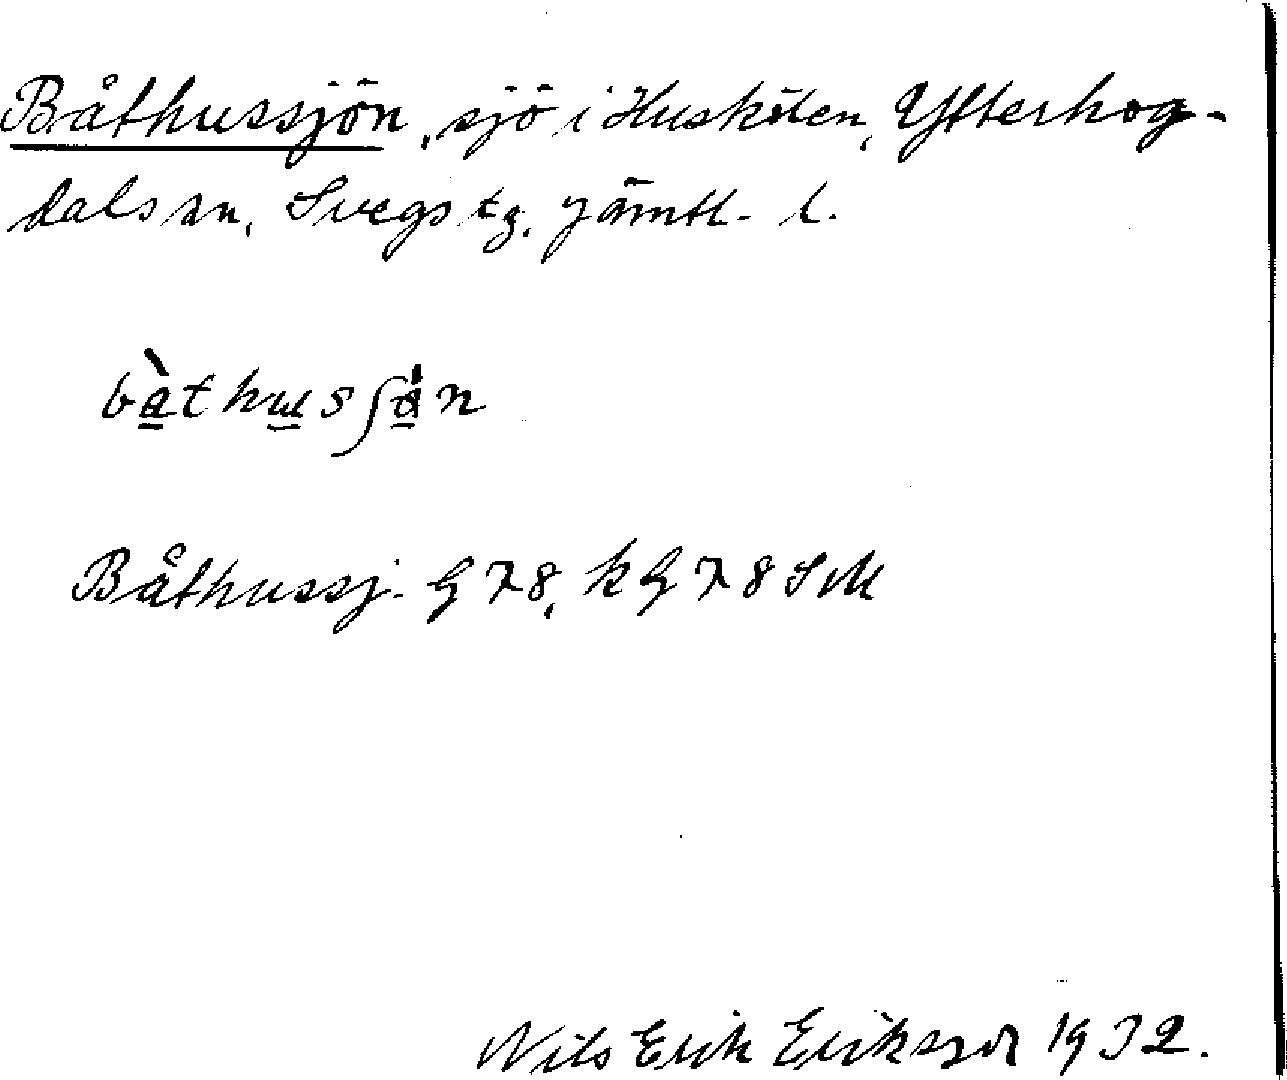 Båthussjön, sjö i Huskölen, Ytterhog-
dals sn, Svegs tg. Jämtl. l.
Båthussj. G 78, k G 78 SM
Nils Erik Eriksson 1932.